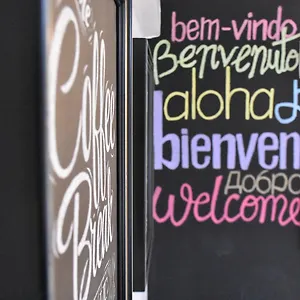 Coffee
Break
bem-vindo
Benvenuto
aloha
bienven
добро
Welcome